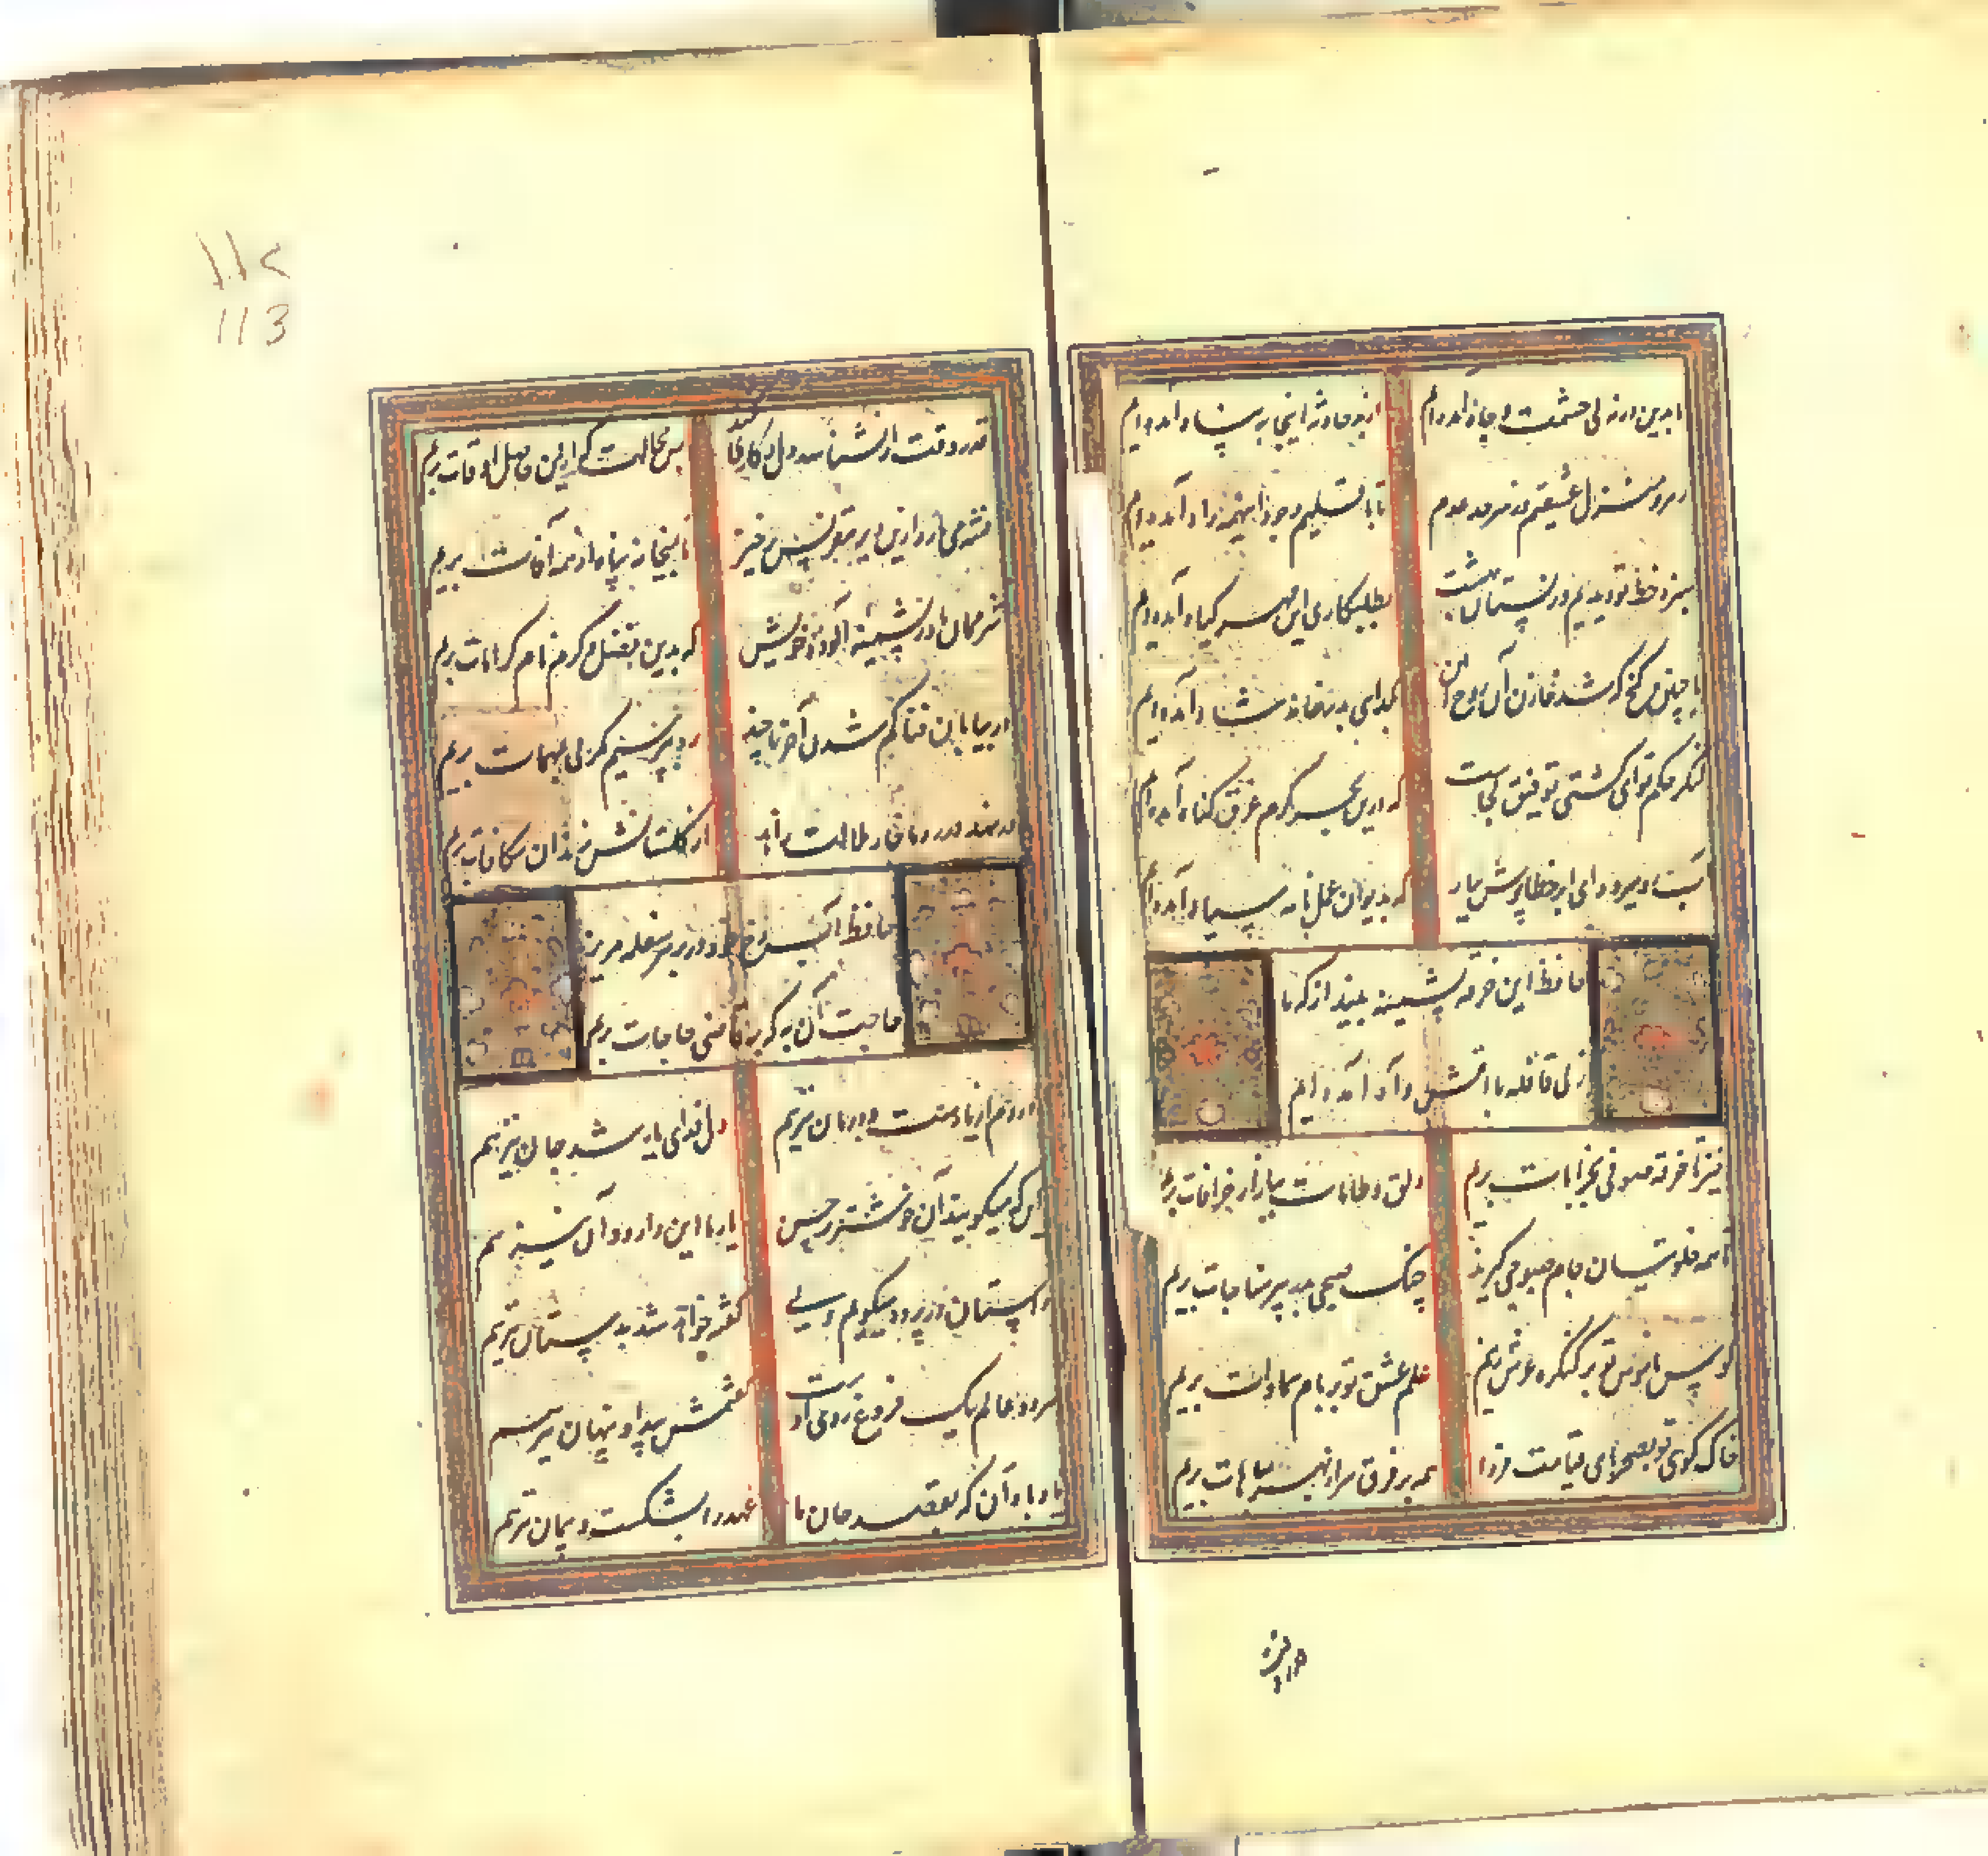 ما بدین در نه پی حشمت و جاه آمده‌ایم
از بد حادثه اینجا به پناه آمده‌ایم
رهرو منزل عشقیم و ز سرحد عدم
تا باقلیم وجود اینهمه راه آمده‌ایم
سبزه خط تو دیدیم و ز بستان بهشت
بطلبکاری این مهر گیاه آمده‌ایم
با چنین گنج که شد خازن آن روح امین
بگدایی بدر خانه شاه آمده‌ایم
لنگر حلم تو ای کشتی توفیق کجاست
که درین بحر کرم غرق گناه آمده‌ایم
آب رو میرود ای ابر خطاپوش ببار
که بدیوان عمل نامه سیاه آمده‌ایم
حافظ این خرقه پشمینه بینداز که ما
از پی قافله با آتش و آه آمده‌ایم
خیز تا خرقه صوفی بخرابات بریم
دلق و طامات ببازار خرافات بریم
تا همه خلوتیان جام صبوحی گیرند
چنگ صبحی بدر پیر مناجات بریم
کوس ناموس تو بر کنگره عرش زنیم
علم عشق تو بر بام سماوات بریم
خاک کوی تو بصحرای قیامت فردا
همه بر فرق سر از بهر مباهات بریم
قدر وقت ار نشناسد دل و کاری نکند
بس خجالت که ازین حاصل اوقات بریم
فتنه می‌بارد ازین سقف مقرنس برخیز
تا بمیخانه پناه از همه آفات بریم
شرممان باد ز پشمینه آلوده خویش
که بدین فضل و کرم نام کرامات بریم
در بیابان فنا گم شدن آخر تا چند
ره بپرسیم مگر پی بمهمات بریم
از گلستانش بزندان مکافات بریم
حافظ آب رخ خود بر در هر سفله مریز
حاجت آن به که بر قاضی حاجات بریم
دردم از یارست و درمان نیز هم
دل فدای یار شد جان نیز هم
این که میگویند آن خوشتر ز حسن
یار ما این دارد و آن نیز هم
داستان در پرده میگویم ولی
گفته خواهد شد بدستان نیز هم
هر دو عالم یک فروغ روی اوست
گفتمش پیدا و پنهان نیز هم
یاد باد آن که بقصد جان ما
عهد را بشکست و پیمان نیز هم
۱۱۲
113